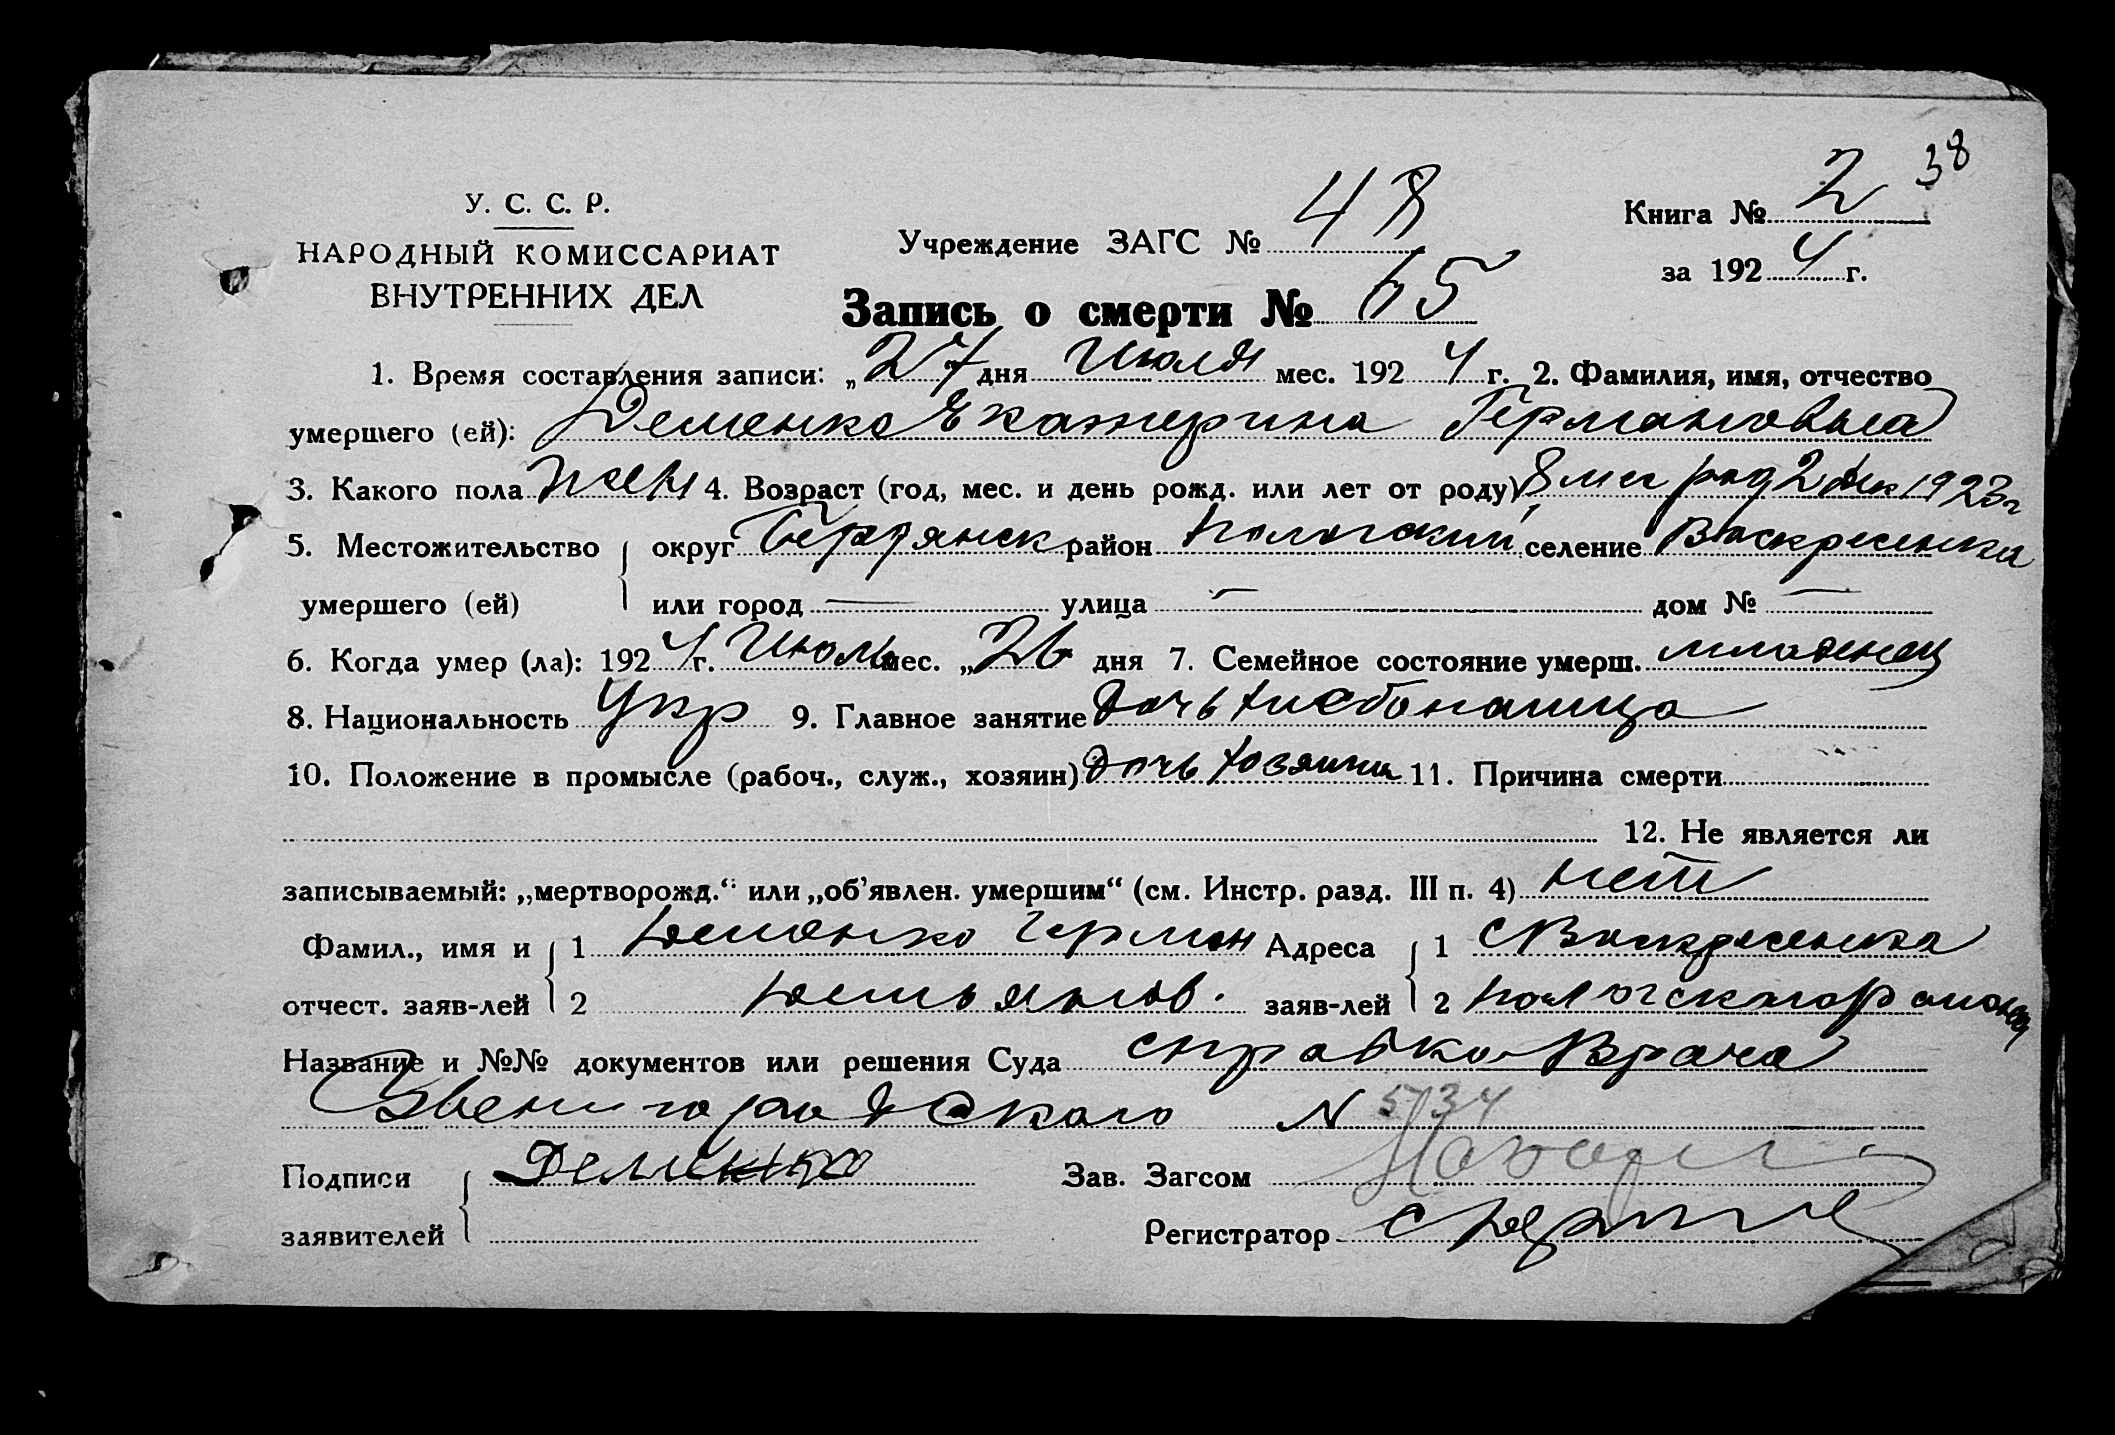 38
У. С. С. Р.
НАРОДНЫЙ КОМИССАРИАТ
ВНУТРЕННИХ ДЕЛ
Учреждение ЗАГС № 48
Книга № 2
за 1924 г.
Запись о смерти № 65
1. Время составления записи: „27 дня Июля мес. 1924 г. 2. Фамилия, имя, отчество
умершего (ей): Деменко Екатерина Германовна
3. Какого пола жен 4. Возраст (год, мес. и день рожд. или лет от роду) 8 мес род 2 дек 1923 г
5. Местожительство округ Бердянск район Пологский селение Воскресенка
умершего (ей) или город — улица — дом № —
6. Когда умер (ла): 1924 г. Июль мес. „26 дня 7. Семейное состояние умерш. младенец
8. Национальность Укр 9. Главное занятие дочь хлебопашца
10. Положение в промысле (рабоч., служ., хозяин) дочь хозяина 11. Причина смерти
12. Не является ли
записываемый: „мертворожд.“ или „об’явлен. умершим“ (см. Инстр. разд. III п. 4) нет
Фамил., имя и 1 Деменко Герман Адреса 1 с Воскресенка
отчест. заяв-лей 2 Демьянов. заяв-лей 2 Пологского района
Название и №№ документов или решения Суда справка Врача
Звенигородского N 534
Подписи Деменко Зав. Загсом
заявителей Регистратор